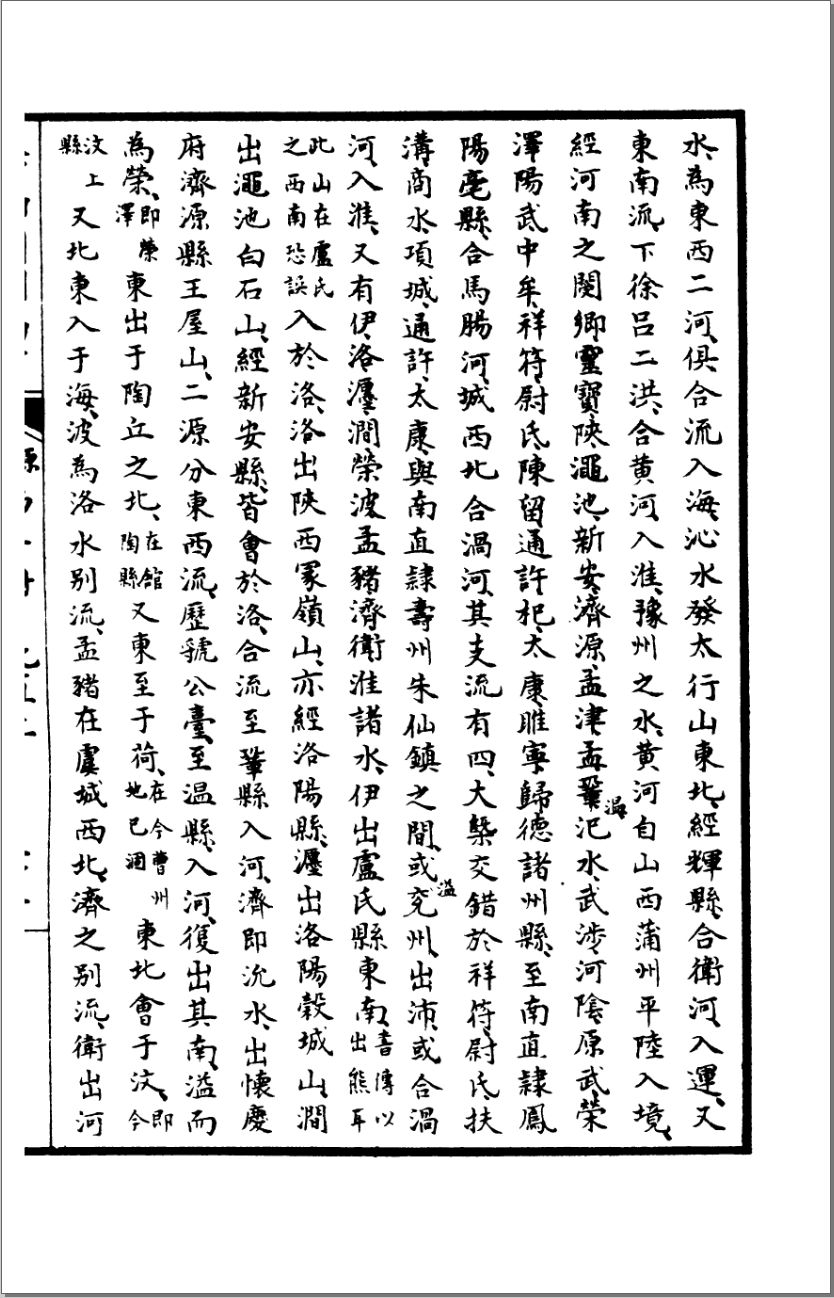 水、為東西二河、俱合流入海、沁水發太行山東北、經輝縣、合衛河、入運、又
東南流、下徐呂二洪、合黄河、入淮、豫州之水、黄河自山西蒲州平陸入境、
經河南之閿鄉、靈寶、陝、澠池、新安、濟源、孟津、孟、鞏、溫、汜水、武涉、河陰、原武、榮
澤、陽武、中牟、祥符、尉氏、陳留、通許、杞、太康、睢寧、歸德諸州縣、至南直隸鳳
陽亳縣、合馬腸河、城西北合渦河、其支流有四、大槩交錯於祥符、尉氏、扶
溝、商水、項城、通許、太康、與南直隸壽州朱仙鎮之間、或溢兖州、出沛、或合渦
河、入淮、又有伊、洛、瀍、澗、榮、波、孟豬、濟、衛、淮諸水、伊出盧氏縣東南、書傳以出熊耳
此山在盧氏之西南恐誤入於洛、洛出陝西冢嶺山、亦經洛陽縣、瀍出洛陽穀城山、澗
出澠池白石山、經新安縣、皆會於洛、合流至鞏縣入河、濟即沇水、出懷慶
府濟源縣王屋山、二源分東西流、歷虢公臺、至温縣、入河、復出其南、溢而
為榮、即榮澤東出于陶丘之北、在館陶縣又東至于荷、在今曹州地已涸東北會于汶、即今
汶上縣又北東入于海、波為洛水別流、孟豬在虞城西北、濟之别流、衛出河